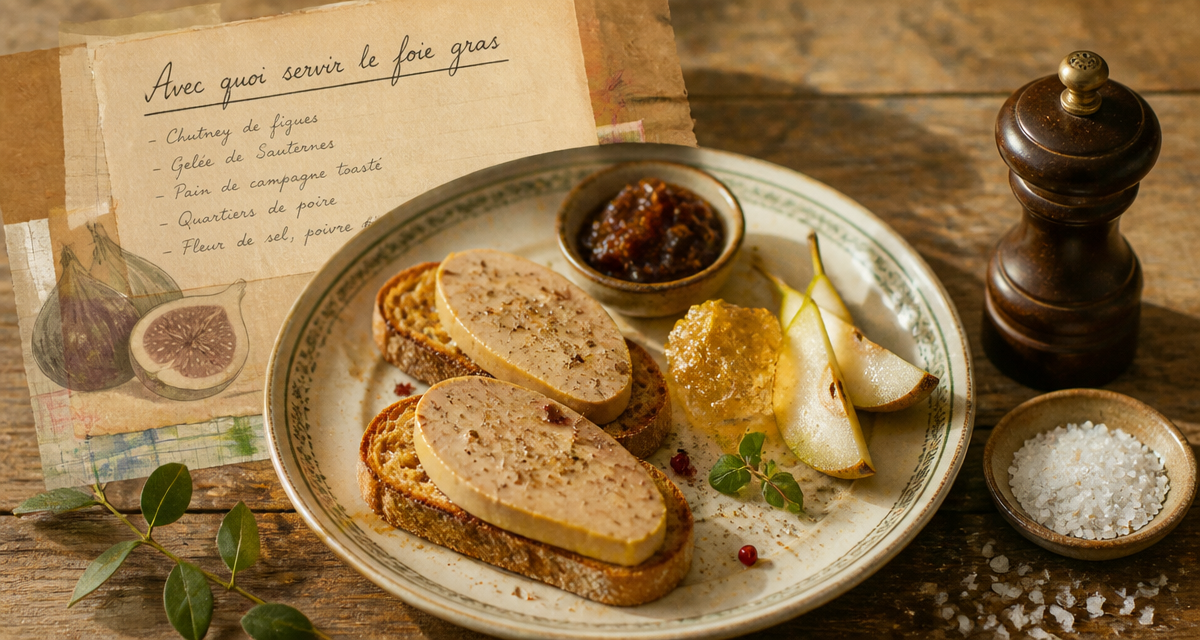 Avec quoi servir le foie gras
- Chutney de figues
- Gelée de Sauternes
- Pain de campagne toasté
- Quartiers de poire
- Fleur de sel, poivre